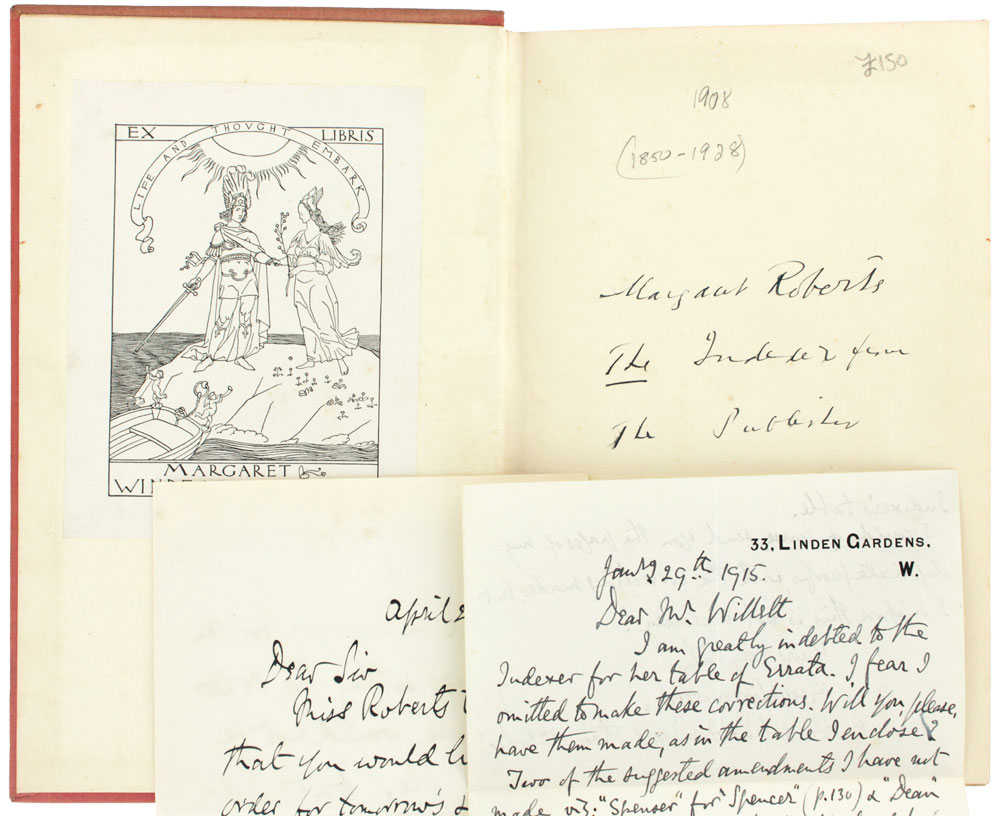 EX LIBRIS
LIFE AND THOVGHT EMBARK
MARGARET
£150
1908
(1850-1928)
Margaret Roberts
The Indexer from
The Publisher
April 2
Dear Sir
Miss Roberts
that you would
order for tomorrow's
33, LINDEN GARDENS,
W.
Jany 29th 1915.
Dear Mr. Willett
I am greatly indebted to the
Indexer for her table of Errata. I fear I
omitted to make these corrections. Will you, please,
have them made, as in the table I enclose?
Two of the suggested amendments I have not
made viz: "Spenser" for "Spencer" (p.130) & "Dean"